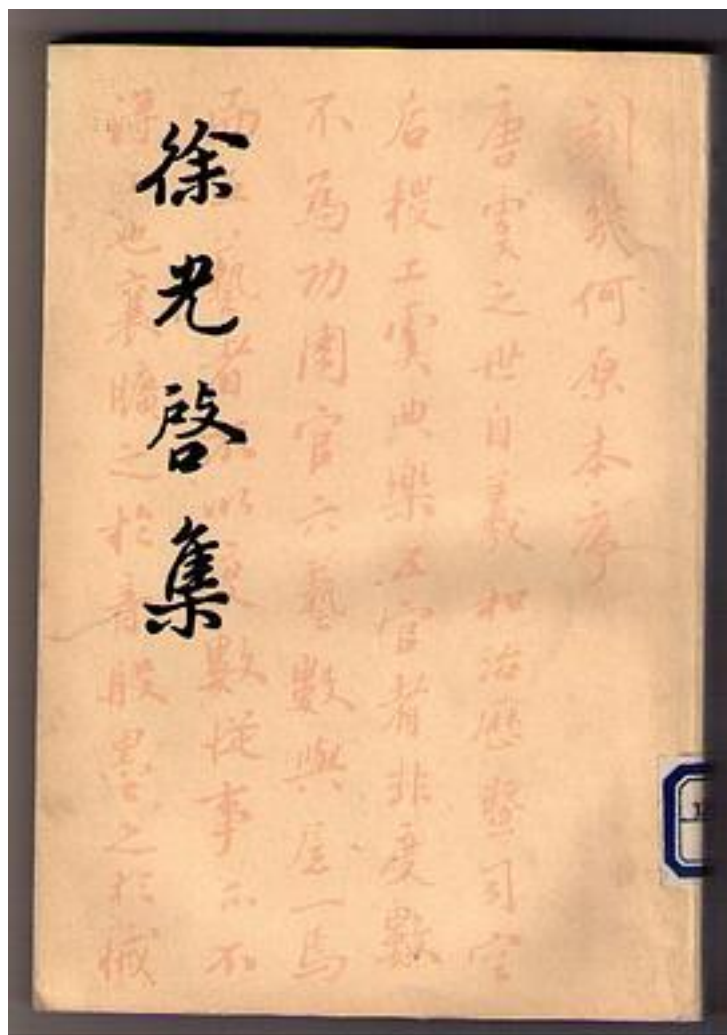 徐光啓集
刻幾何原本序
唐虞之世自羲和治曆暨司空
后稷工虞典樂五官者非度數
不為功周官六藝數與居一焉
而藝者以度數從事亦不
得也襄曠之於音般墨之於械